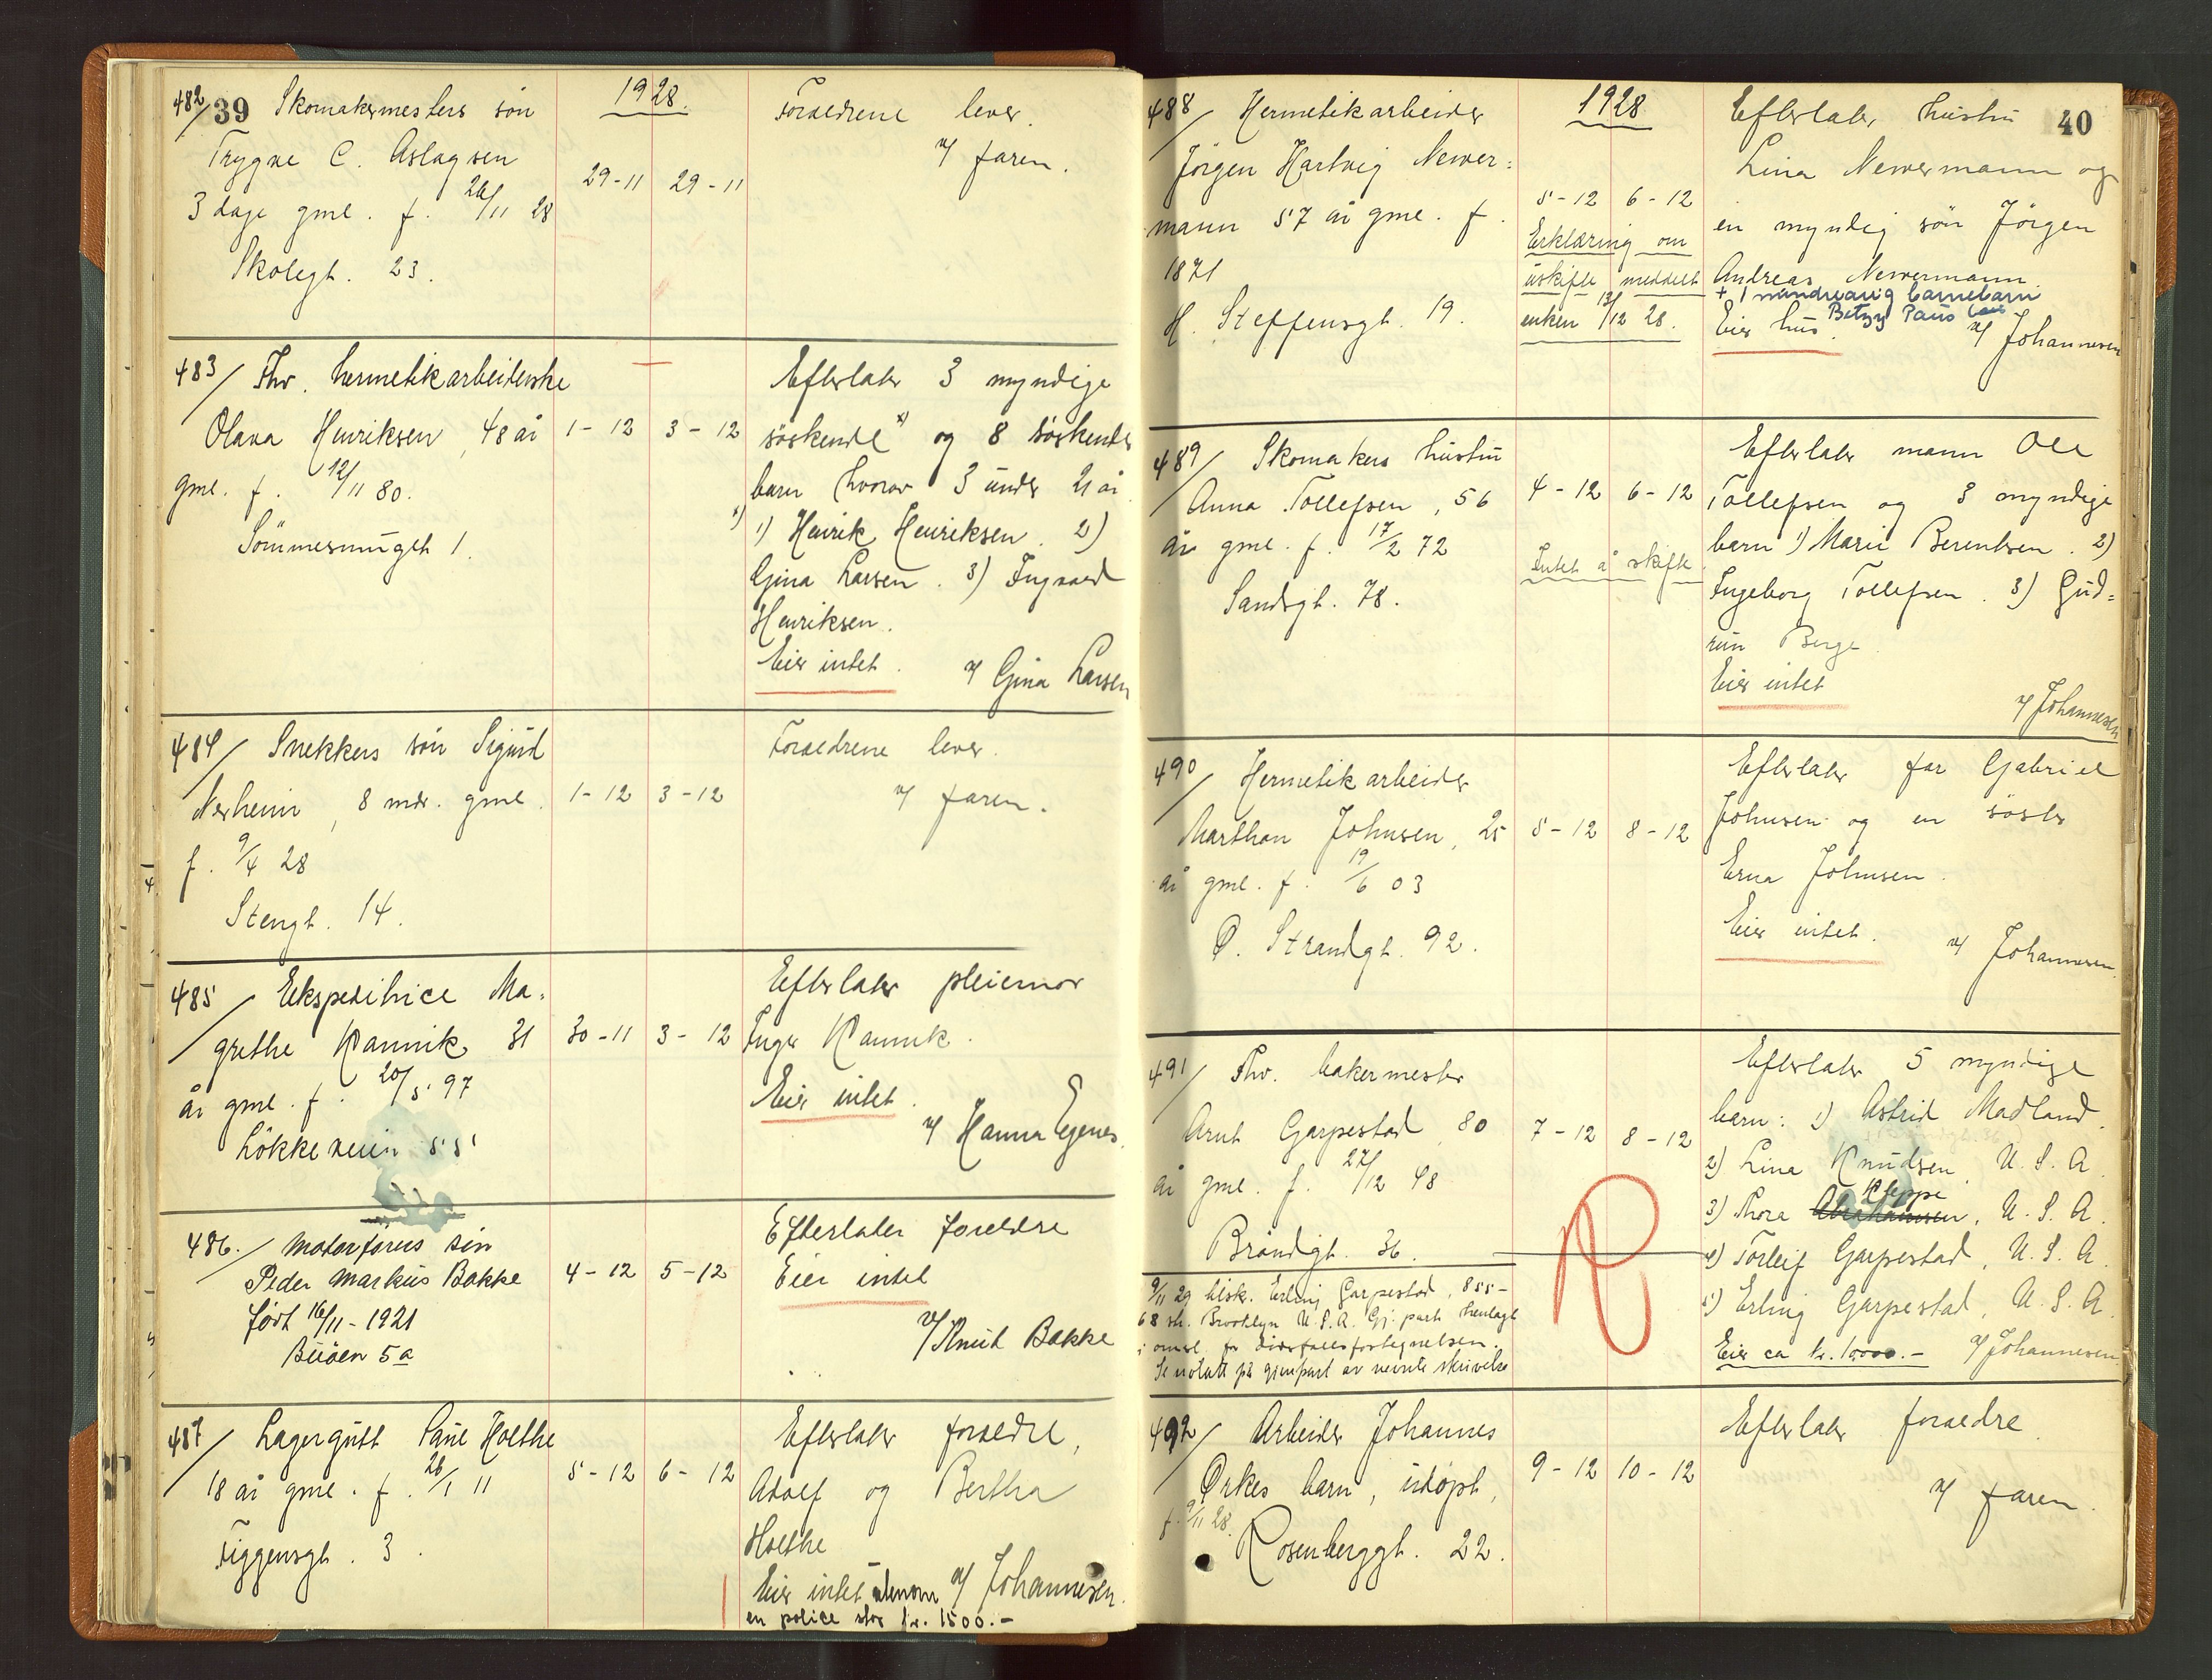 39
482/ Skomakermesters søn
Trygve C. Aslagsen
3 dage gml. f. 26/11 28
Skolegt. 23.
1928.
29-11 29-11
Foraeldrene lever.
v/ faren.
483/ Fhv. hermetikarbeiderske
Olava Henriksen, 48 år
gml. f. 12/11 80.
1-12 3-12
Efterlater 3 myndige
søskende x) og 8 søskende
barn hvorav 3 under 21 år
x) 1) Henrik Henriksen. 2)
Gina Larsen. 3) Ingvald
Henriksen.
Eier intet. v/ Gina Larsen
484/ Snekkers søn Sigurd
Nerheim, 8 mdr. gml.
f. 9/4 28
Stengt. 14.
1-12 3-12
Foraeldrene lever.
v/ faren.
485/ Ekspeditrice Ma-
grethe Kannik 31
år gml. f. 20/5 97
Løkkeveien 55
30-11 3-12
Efterlater pleiemor
Inger Kannik.
Eier intet.
v/ Hanna Egenes.
486./ Motorførers søn
Peder Markus Bakke
født 16/11-1921
Buøen 5a
4-12 5-12
Efterlater foreldre
Eier intet
v/ Knut Bakke
487/ Lagergutt Paul Holthe
18 år gml. f. 26/1 11
Figgensgt. 3.
5-12 6-12
Efterlater foraeldre,
Adolf og Bertha
Holthe
Eier intet utenom v/ Johannesen.
en police stor kr. 1500.-
40
488/ Hermetikarbeider
Jörgen Hartvig Newer=
mann 57 år gml. f.
1871
H. Steffensgt. 19.
1928
5-12 6-12
Erklæring om
uskifte meddelt
enken 13/12 28.
Efterlater hustru
Lina Newermann og
en myndig søn Jörgen
Andreas Newermann
+ 1 mindreårig barnebarn
Betzy Paus
Eier hus. v/ Johannesen
489/ Skomakers hustru
Anna Tollefsen, 56
år gml. f. 17/2 72
Sandsgt. 78.
4-12 6-12
Intet å skifte
Efterlater mann Ole
Tollefsen og 3 myndige
barn 1) Marie Berentsen. 2)
Ingeborg Tollefsen. 3) Gud=
run Berge
Eier intet
v/ Johannesen
490/ Hermetikarbeider
Marthon Johnsen, 25
år gml. f. 19/6 03
Ø. Strandgt. 92.
5-12 8-12
Efterlater far Gabriel
Johnsen og en søster
Erna Johnsen.
Eier intet.
v/ Johannesen.
491/ Fhv. bakermester
Arnt Garpestad 80
år gml. f. 27/12 48
Brandgt. 36.
9/11 29 tilsk. Erling Garpestad, 855-
68 str. Brooklyn U.S.A. Gj. part henlagt
i omsl. for dødsfallsfortegnelsen.
Se notatt på gjenpart av nevnte skrivelse
7-12 8-12
R
Efterlater 5 myndige
barn: 1) Astrid Madland.
2) Lina Knudsen, U.S.A.
3) Thora Abrahamsen Kleppe, U.S.A.
4) Torleif Garpestad, U.S.A.
5) Erling Garpestad, U.S.A.
Eier ca kr. 10000.- v/ Johannesen.
492/ Arbeider Johannes
Ørkes barn, udøpt,
f. 9/11 28.
Rosenberggt. 22.
9-12 10-12
Efterlater foraeldre.
v/ faren.